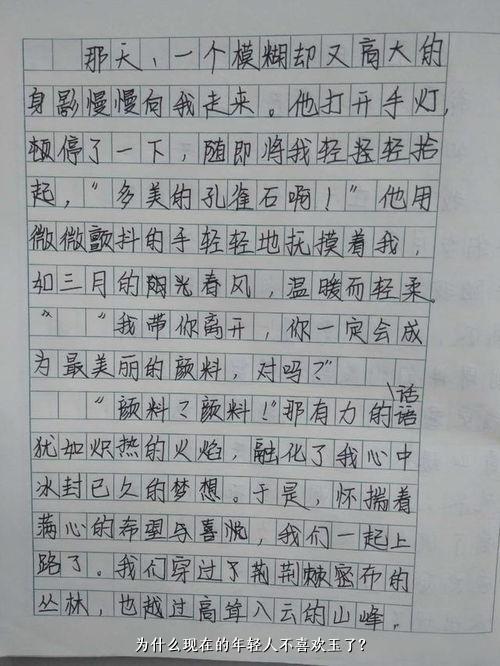 那天，一个模糊却又高大的
身影慢慢向我走来。他打开手灯，
顿停了一下，随即将我轻轻拾
起，“多美的孔雀石啊！”他用
微微颤抖的手轻轻地抚摸着我，
如三月的阳光春风，温暖而轻柔。
“我带你离开，你一定会成
为最美丽的颜料，对吗？”
“颜料？颜料！”那有力的话语
犹如炽热的火焰，融化了我心中
冰封已久的梦想。于是，怀揣着
满心的希望与喜悦，我们一起上
路了。我们穿过了荆荆棘密布的
丛林，也越过高耸入云的山峰。
为什么现在的年轻人不喜欢玉了？